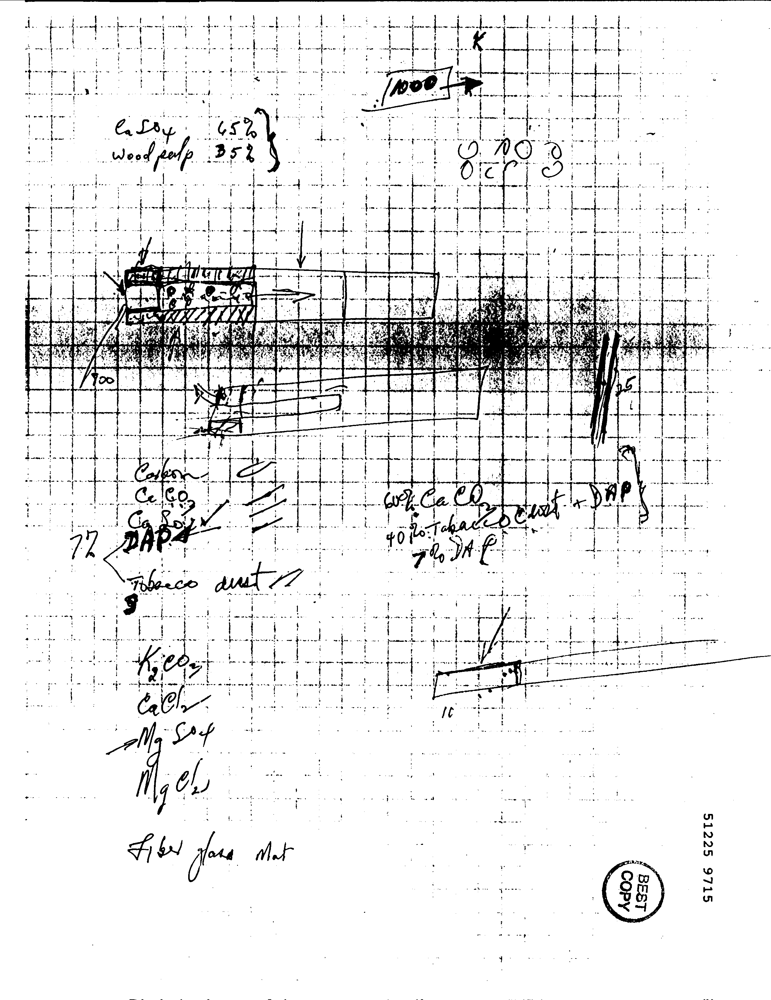 K
1000
CaSO4 65%
Wood pulp 35%
700
25
Carbon
CaCO3
CaSO4
72 DAP
Tobacco dust
60% CaCO3
40% Tobacco dust + DAP
7% DAP
K2CO3
CaCl2
MgSO4
MgCl2
10
Fiber glass Mat
51225 9715
BEST COPY